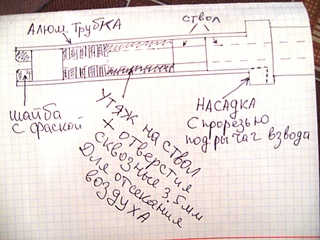 Алюм. Трубка
ствол
шайба
с фаской
Утяж на ствол
+ отверстия
сквозные 3.5мм
Для отсекания
воздуха
Насадка
с прорезью
под рычаг взвода